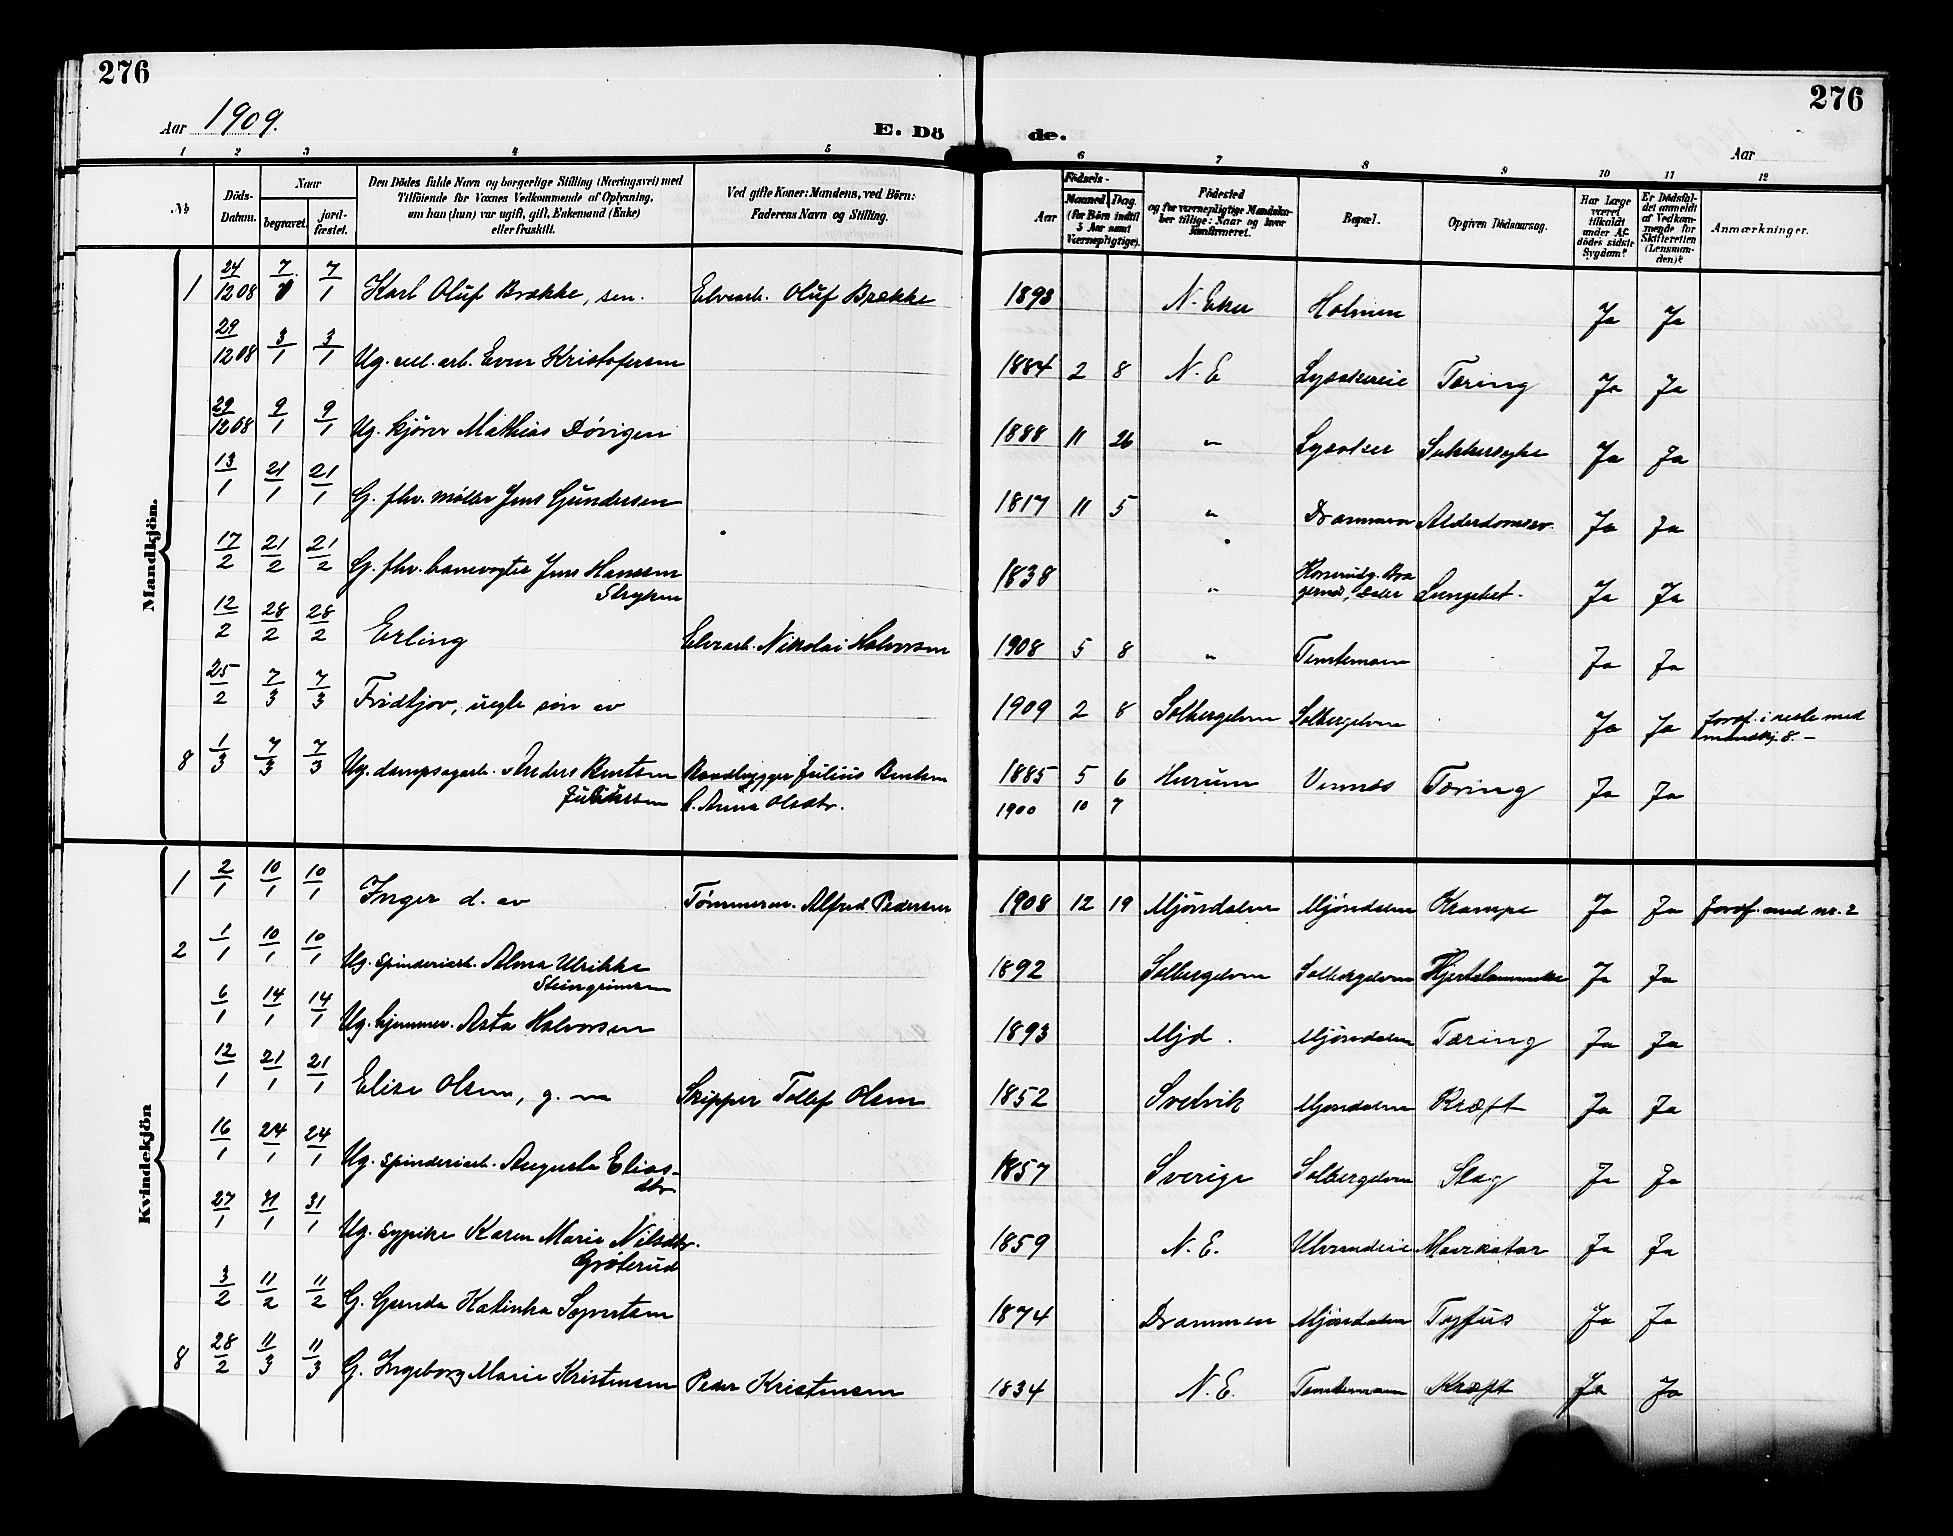 276
276
Aar 1909.
E. Dö
de.
Aar
1 2 3 4 5 6 7 8 9 10 11 12
№
Döds-Datum.
Naar
begravet.
jord-fæstet.
Den Dödes fulde Navn og borgerlige Stilling (Næringsvei) med
Tilföiende for Voxnes Vedkommende af Oplysning,
om han (hun) var ugift, gift, Enkemand (Enke)
eller fraskilt.
Ved gifte Koner: Mandens, ved Börn:
Faderens Navn og Stilling.
Födsels-
Aar
Maaned.
Dag.
(for Börn indtil
5 Aar samt
Værnepligtige).
Födested
og for værnepligtige Mandskaber tillige: Naar og hvor konfirmeret.
Bopæl.
Opgiven Dödsaarsag.
Har Læge været tilkaldt under Afdödes sidste Sygdom?
Er Dödsfaldet anmeldt af Vedkommende for Skifteretten (Lensmanden)?
Anmærkninger.
Mandkjön.
1 24/12 08 7/1 7/1 Karl Oluf Brække, sen. Elvearb. Oluf Brække 1893 N. Eker Holmen Ja Ja
29/12 08 3/1 3/1 Ug. cell. arb. Even Kristofersen 1884 2 8 N. E Lysakereie Tæring Ja Ja
29/12 08 9/1 9/1 Ug. kjører Mathias Dövigen 1888 11 26 " Lysaker Sukkersyke Ja Ja
13/1 21/1 21/1 G. fhv. møller Jens Gundersen 1817 11 5 " Drammen Alderdomssv. Ja Ja
17/2 21/2 21/2 G. fhv. banevogter Jens Hansen 1838 "
Stryken Ja Ja
12/2 28/2 28/2 Erling Elvearb. Nikolai Halvorsen 1908 5 8 " Temtemoen Ja Ja
25/2 7/3 7/3 Fridtjov, uegte søn av 1909 2 8 Solbergelven Solbergelven Ja Ja
8 1/3 7/3 7/3 Ug. dampsagarb. Anders Bentsen Baadbygger Julius Bentsen 1885 5 6 Hurum Vinnes Tæring Ja Ja
Juliussen Anna Olsdtr. 1900 10 7
Kvindekjön
1 2/1 10/1 10/1 Inger d. av Tömmerm. Alfred Pedersen 1908 12 19 Mjöndalen Mjöndalen Krampe Ja Ja jordf. med nr. 2
2 1/1 10/1 10/1 Ug. spinderiarb. Alma Ulrikke 1892 Solbergelven Solbergelven Hjertelammelse Ja Ja
Steingrimsen
6/1 14/1 14/1 Ug. hjemmev. Asta Halvorsen 1893 Mjd. Mjöndalen Tæring Ja Ja
12/1 21/1 21/1 Elise Olsen, g. m Skipper Tollef Olsen 1852 Svelvik Mjøndalen Kræft Ja Ja
16/1 24/1 24/1 Ug. spinderiarb. Augusta Elias- 1857 Sverige Solbergelven Slag Ja Ja
dtr
27/1 31/1 31/1 Ug. sypike Karen Marie Nilsdtr. 1859 N. E. Mavekatar Ja Ja
Grøterud
3/2 11/2 11/2 G. Gunda Katinka Syvertsen 1874 Drammen Mjöndalen Tyfus Ja Ja
8 28/2 11/3 11/3 G. Ingeborg Marie Kristensen Peder Kristensen 1834 N. E. Temtemoen Kræft Ja Ja